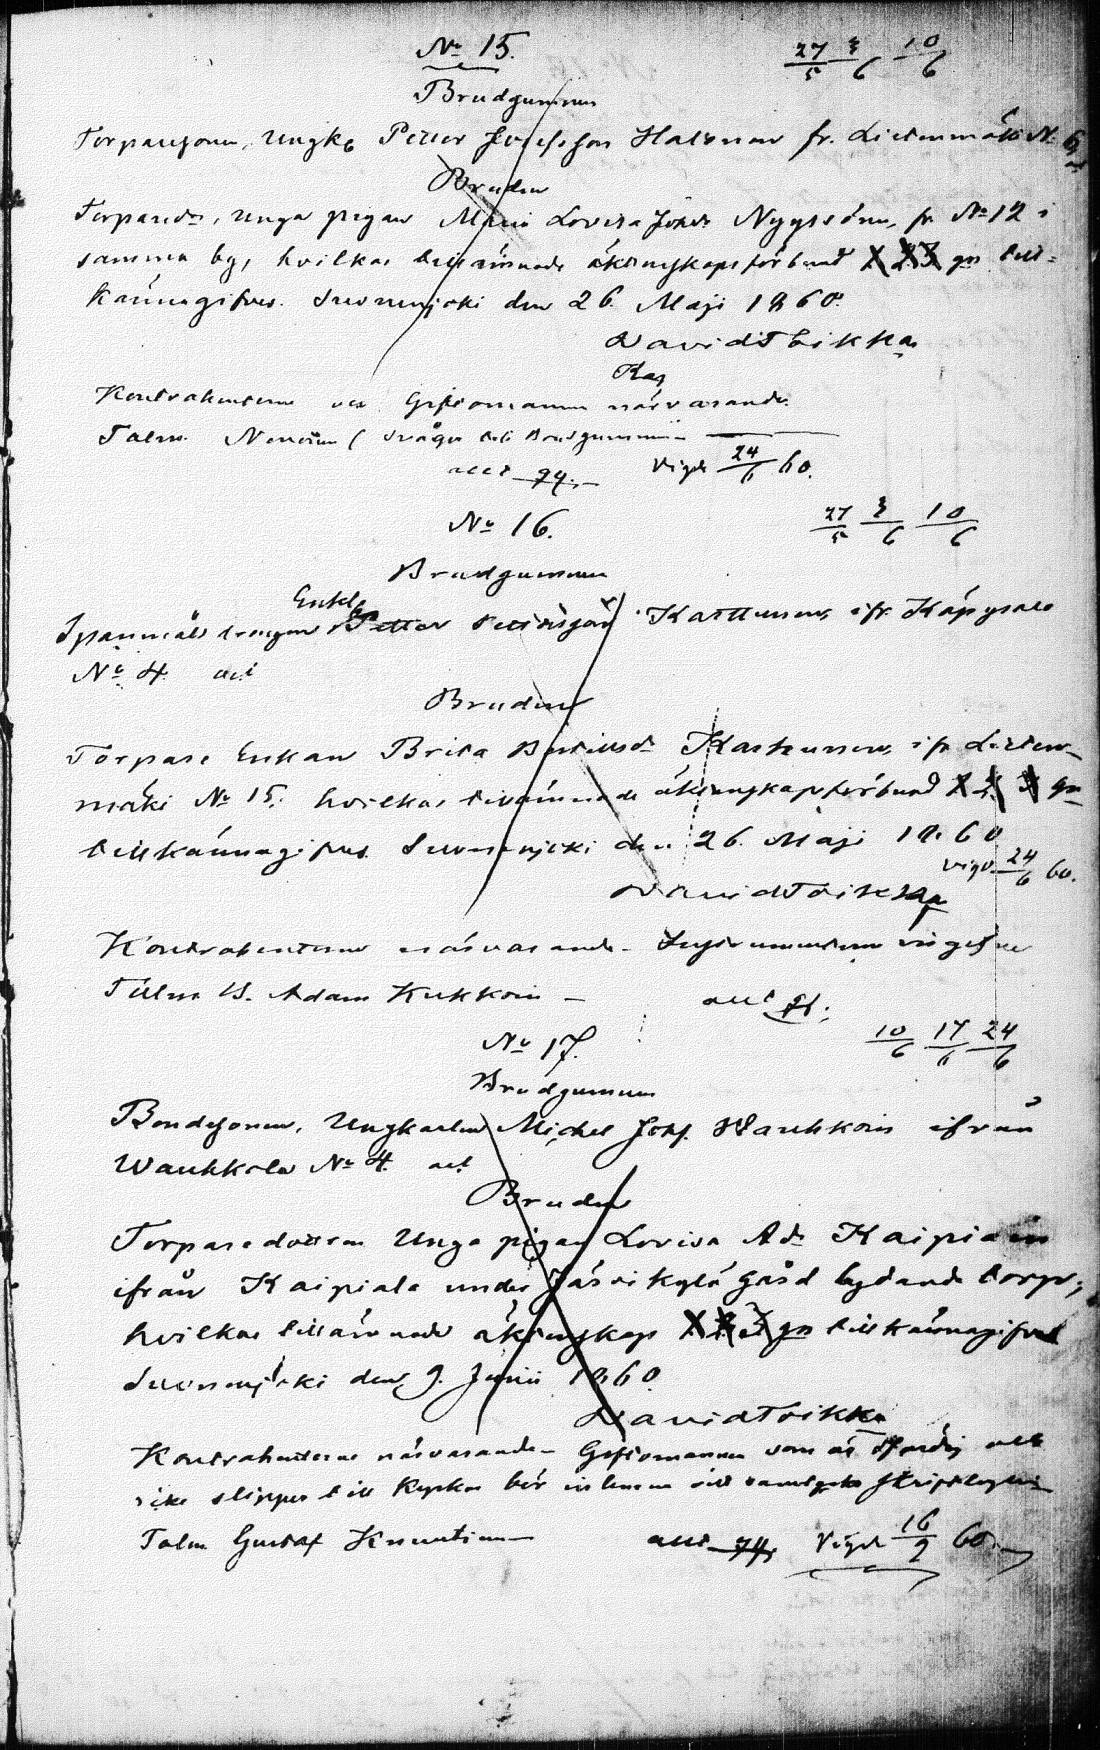 No 15. 27/5 3/6 10/6
Brudgummen
Torparesonen, Ungk. Petter Josefsson Halonen fr. Lietenmäki No 6,
Bruden
Torparedr, unga pigan Maria Lovisa Johsdr Nyyssönen, fr No 12 i
samma by, hvilkas tillämnade äktenskapsförbund 1 2 3 gn till-
kännagifves. Suonenjoki den 26. Maji 1860.
David Toikka
Kontrahenterne och Giftomannen närvarande.
Talm. (Svåger till Brudgummen
Vigde 24/6 60.
No 16. 27/5 3/6 10/6
Brudgummen
Enkl.
Spannmåls Petter Pettersson Karttunen, ifr. Käpysalo
No 4. och
Bruden
Torpare Enkan Brita Karhunen, ifr Lieten-
mäki No 15. hvilkas tillämnade äktenskapsförbund 1 2 3 gn
tillkännagifves. Suonenjoki den 26. Maji 1860
vigde 24/6 60.
David Toikka
Kontrahenterne närvarande -
Talm B. Adam Kukkoin -
No 17. 10/6 17/6 24/6
Brudgummen
Bondesonen, Ungkarlen Michel Johs. Wauhkoin ifrån
Wauhkola No 4. och
Bruden
Torparedottren Unga pigan Lovisa Adr Kaipiain
ifrån Kaipiala under Järvikylä gård lydande torp,
hvilkas tillämnade äktenskap 1 2 3 gn tillkännagifves
Suonenjoki den 9. Junii 1860.
David Toikka
Kontrahenterne närvarande - Giftomannen som är och
icke slipper till Kyrkan bör
Talm Gustaf Knuutinen Vigde 16/9 60.